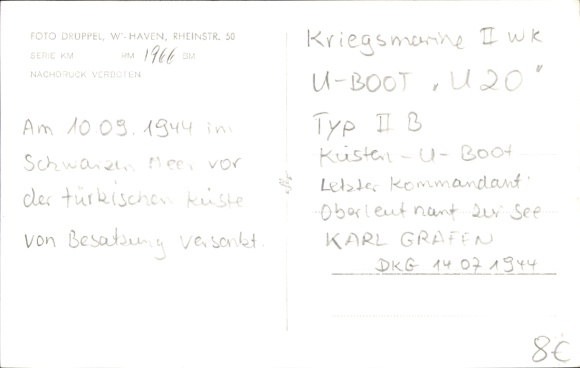 FOTO DRÜPPEL, W'HAVEN, RHEINSTR. 50
SERIE KM HM 1966 BM
NACHDRUCK VERBOTEN
Am 10.09.1944 im
Schwarzen Meer vor
der türkischen Küste
von Besatzung versenkt.
Kriegsmarine II WK
U-BOOT "U 20"
Typ II B
Küsten-U-Boot
Letzter Kommandant
Oberleutnant zur See
KARL GRAFEN
DKG 14.07.1944
8€